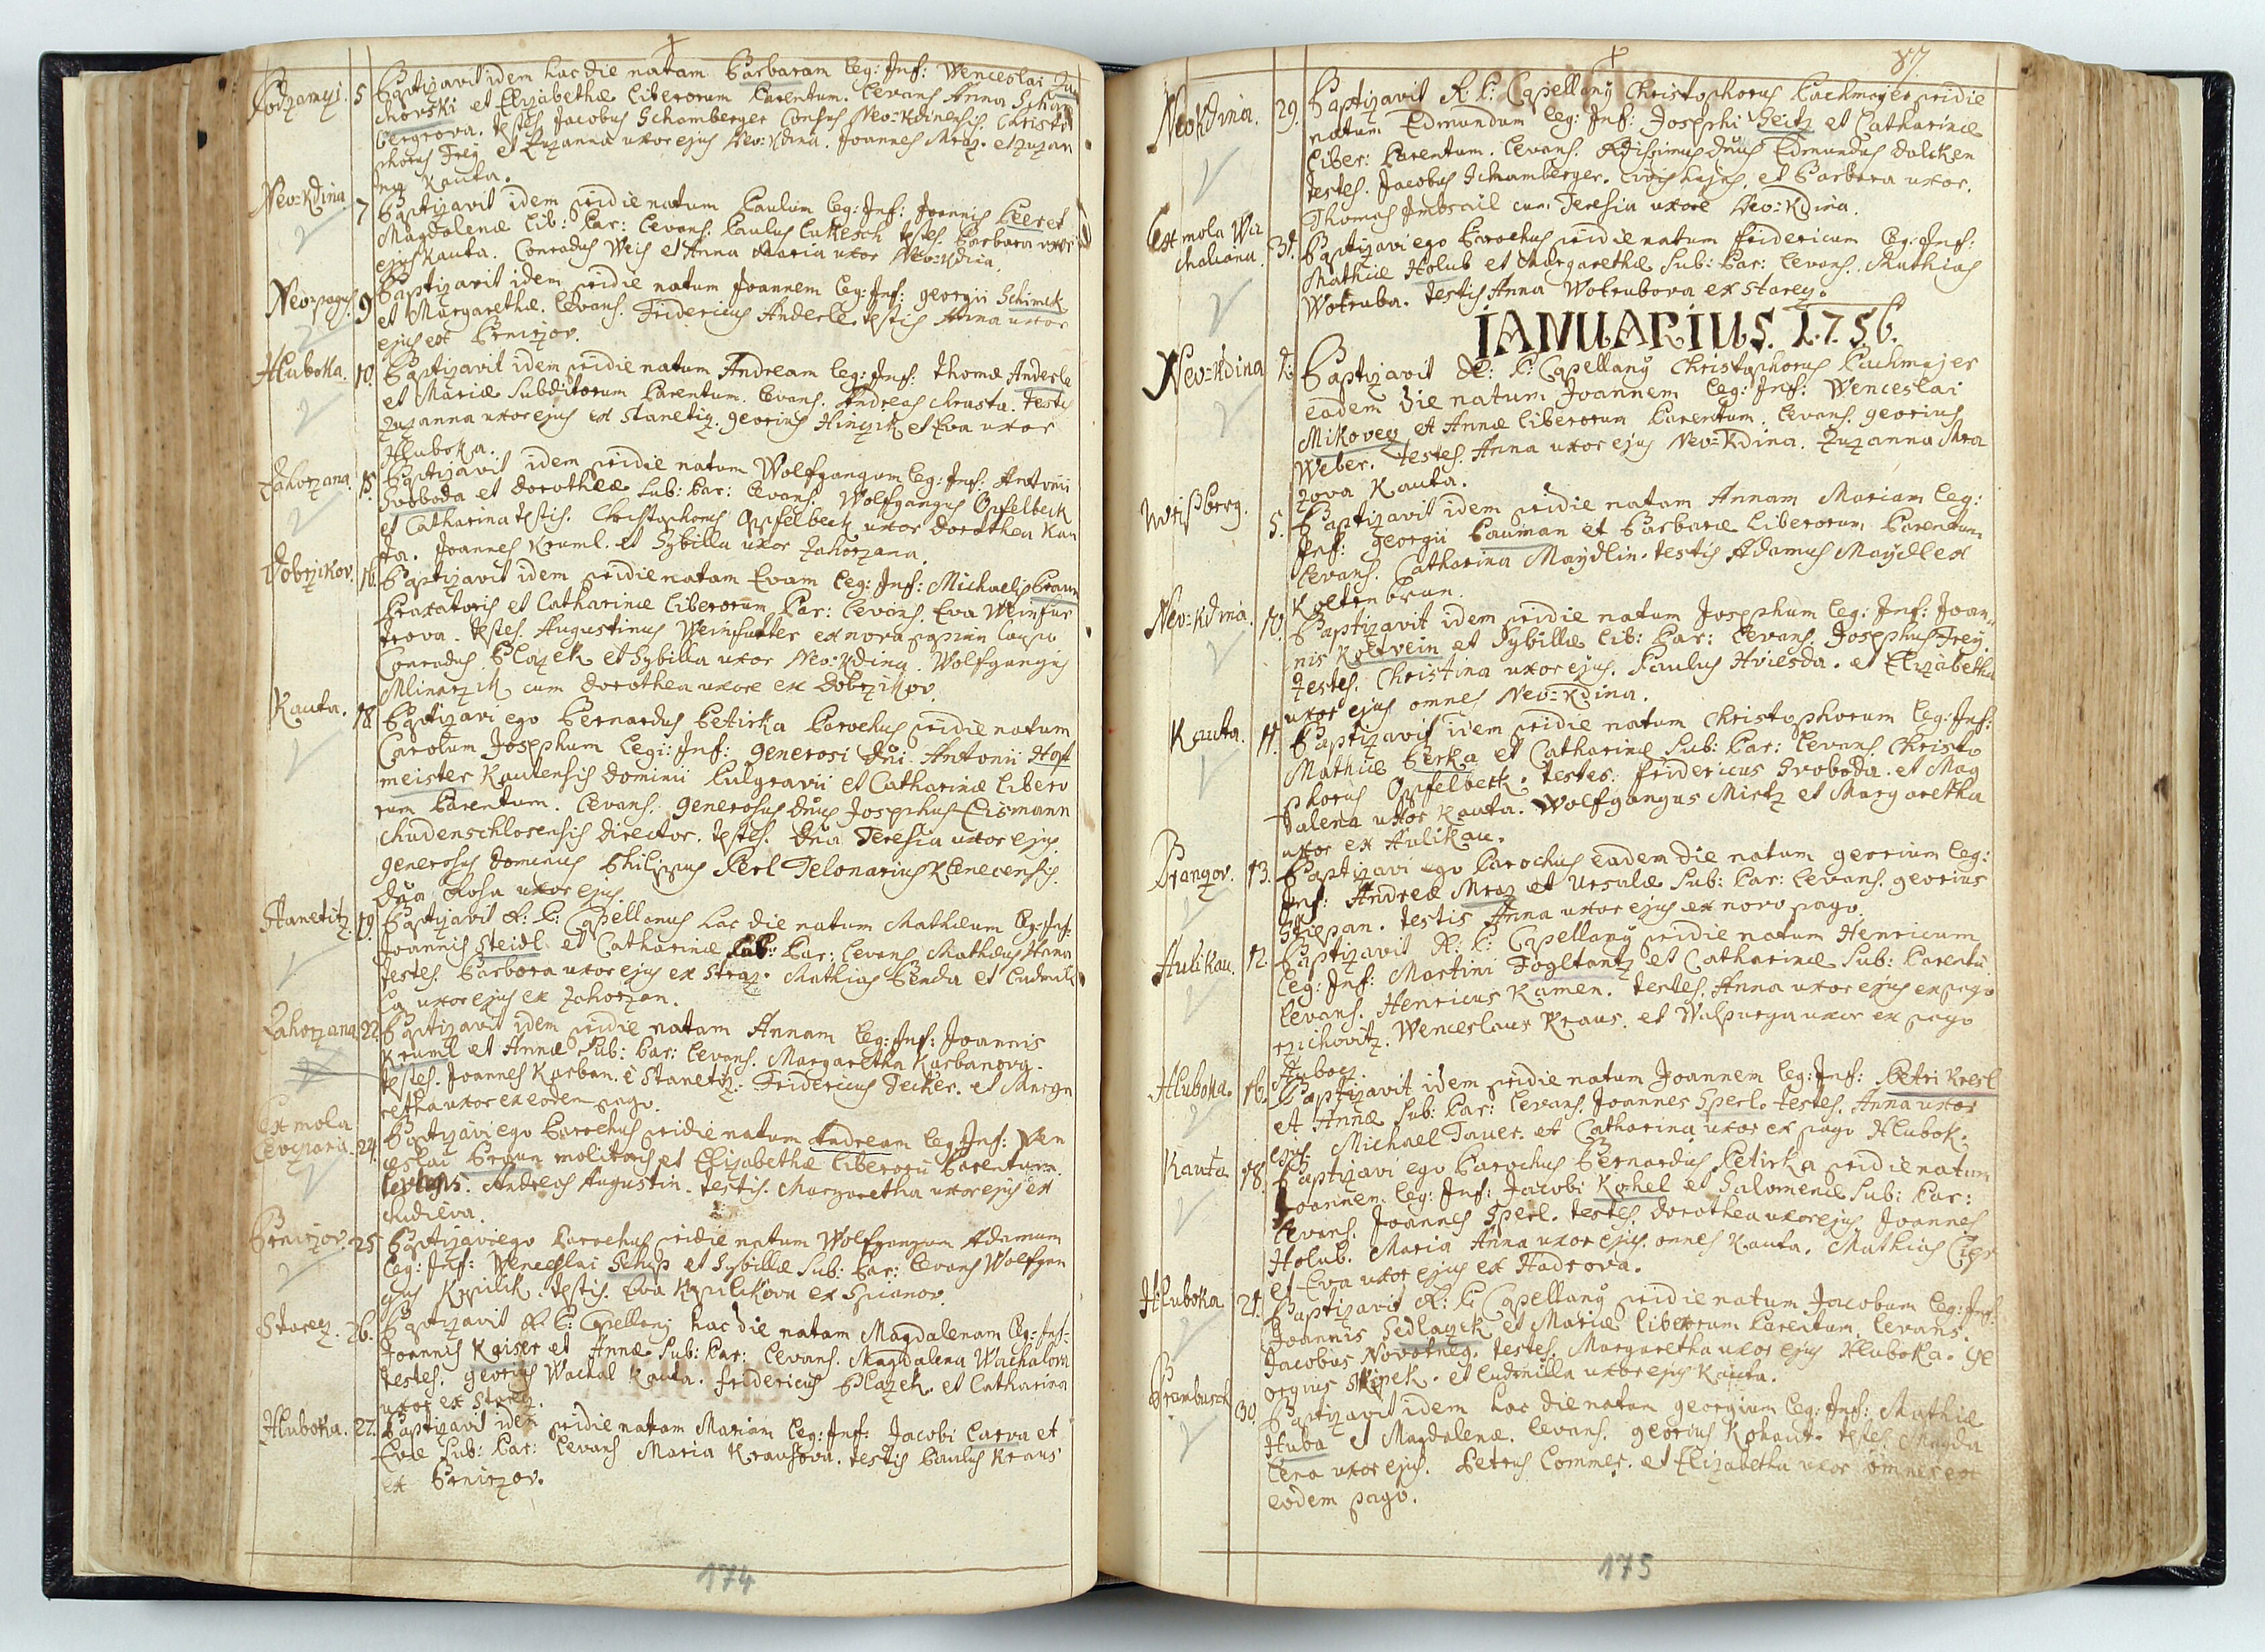 Podzamyi. 5 Baptizavit idem hac die natam Barbaram leg: Inf: Wenceslai
chovski et Elizabethæ liberorum Parentum. levans Anna Scham
bergrova. testes Jacobus Schamberger Consul Neo=Kdinensis. Christo
phorus Frey et Zuzanna uxor ejus Neo=Kdina. Joannes Mraz. et Zuzan
na Kauta.
Neo=Kdina. 7 Baptizavit idem pridie natum Paulum leg: Inf: Joannis
Magdalenæ Lib: Par: levans. Paulus Lukesch testes. Barbara uxor
ejus Kauta. Conradus Weis et Anna Maria uxor Neo=Kdina.
Neo=pagus. 9 Baptizavit idem pridie natum Joannem leg: Inf: georgii Schimek
et Margarethæ. levans. Fridericus Anderle. testis Anna uxor
ejus ex Prnirzov.
Hluboka. 10. Baptizavit idem pridie natum Andream leg: Inf: thomæ Anderle
et Mariæ Subditorum Parentum. levans. Andreas Chrasta. testis
Zuzanna uxor ejus ex Stanetiz. georius Hinzik et Eva uxor
Hluboka.
Zahorzana. 15. Baptizavit idem pridie natum Wolfgangum leg: Inf: Antonii
Svoboda et dorotheæ Sub: Par: levans. Wolfgangus Opfelbeck
et Catharina testis. Christophorus Opfelbeck uxor dorothea Kau
ta. Joannes Kruml. et Sybilla uxor Zahorzana.
Dobrzikov. 16. Baptizavit idem pridie natam Evam leg: Inf: Michaelis Braun
Braxatoris et Catharinæ liberorum Par: levans. Eva Weinfur
trova. testes. Augustinus Weinfurtter ex nova
Conradus Blazek et Sybilla uxor Neo=Kdina. Wolfgangus
Mlinarzik cum dorothea uxore ex Dobrzikov.
Kauta. 18. Baptizavi ego Bernardus Petirka Parochus pridie natum
Carolum Josephum legi: Inf: generosi Dni Antonii Hoff
meister Kautensis dominii Pulgravii et Catharinæ libero
rum Parentum. levans. generosus Dnus Josephus Eismann
Chudenschlosensis director. testes. Dna Teresia uxor ejus.
generosus Dominus Philippus Perl Telonarius Klenecensis.
Dna Rosa uxor ejus.
Stanetitz. 19. Baptizavit R: P: Capellanus hac die natum Mathæum leg: Inf:
Joannis Steidl et Catharinæ Sub: Par: levans Mathæus
testes. Barbora uxor ejus ex Straz. Mathias Benda et Ludmil
la uxor ejus ex Zahorzan.
Zahorzana 22. Baptizavit idem pridie natam Annam leg: Inf: Joannis
Kruml et Annæ Sub: Par: levans. Margaretha Karbanova.
testes. Joannes Karban. è Stanetiz. Fridericus Jecker. et Marga
retha uxor ex eodem pago.
Ex mola
24. Baptizavi ego Parochus pridie natum Andream leg: Inf: Wen
ceslai Braun molitoris et Elizabethæ liberorũ Parentum.
levans. Andreas Augustin. testis. Margaretha uxor ejus ex
Chudieva.
Prnirzov. 25. Baptizavi ego Parochus pridie natum Wolfgangum Adamum
leg: Inf: Wenceslai et Sybillæ Sub: Par: levans Wolfgan
gus Krpilik. testis. Eva Krpilikova ex Spianov.
Starey. 26. Baptizavit R. P: Capellany hac die natam Magdalenam leg: Inf:
Joannis Kaiser et Annæ Sub: Par: levans. Magdalena Wachalova
testes. georius Wachal Kauta. fridericus Blazek. et Catharina
uxor ex Starey.
Hluboka. 27. Baptizavit idem pridie natam Mariam leg: Inf: Jacobi Carva et
Evæ Sub: Par: levans Maria Krausova. testis Paulus Kraus
ex Prnirzov.
174
87
Neo Kdina. 29. Baptizavit R. P: Capellanÿ Christophorus Puchmajer pridie
natum Edmundum leg: Inf: Josephi Seitz et Catharinæ
liber: Parentum. levans. Rdissimus dnus Edmundus dalcken
testes. Jacobus Schamberger. et Barbara uxor.
Thomas cum Teresia uxore Neo=Kdina.
Ex mola
31. Baptizavi ego Parochus pridie natum fridericum leg: Inf:
Mathiæ Holub et Margarethæ Sub: Par: levans. Mathias
Wotruba. testis Anna Wotrubova ex Starey.
IANUARIUS. 1.7.5.6.
Neo=Kdina 1. Baptizavit R: P: Capellanÿ Christophorus Puchmajer
eadem die natum Joannem leg: Inf: Wenceslai
Mikovey et Annæ liberorum Parentum. levans. georius
Weber. testes. Anna uxor ejus Neo=Kdina. Zuzanna Mra
zova Kauta.
5. Baptizavit idem pridie natam Annam Mariam leg:
Inf: georgii Bauman et Barbaræ liberorum Parentum
levans. Catharina Maydlin. testis Adamus Maÿdl ex
Koltenbrun.
Neo=Kdina. 10. Baptizavit idem pridie natum Josephum leg: Inf: Joan=
nis Koltvein et Sybillæ lib: Par: levans. Josephus Frey
testes. Christina uxor ejus. Paulus Hviesda. et Elizabetha
uxor ejus omnes Neo=Kdina.
Kauta. 11. Baptizavit idem pridie natum Christophorum leg: Inf:
Mathiæ Berka et Catharinæ Sub: Par: levans. Christo
phorus Opfelbeck. testes. fridericus Svoboda. et Mag
dalena uxor Kauta. Wolfgangus Mirtz et Margaretha
uxor ex Aulikau.
Branzov. 13. Baptizavi ego Parochus eadem die natum georium leg:
Inf: Andreæ Mraz et Ursulæ Sub: Par: levans. georius
Stiepan. testis Anna uxor ejus ex novo pago.
Aulikau. 12. Baptizavit R: P: Capellanÿ pridie natum Henricum
leg: Inf: Martini Fogltantz et Catharinæ Sub: Parentũ
levans. Henricus Kamen. testes. Anna uxor ejus ex pago
rzichovitz. Wenceslaus Kraus. et Walpurga uxor ex pago

Hluboka. 16. Baptizavit idem pridie natum Joannem leg: Inf: Petri Kresl
et Annæ Sub: Par: levans. Joannes Sperl. testes. Anna uxor
ejus. Michael Tauer. et Catharina uxor ex pago Hlubok.
Kauta 18. Baptizavi ego Parochus Bernardus Petirka pridie natum
Joannem. leg: Inf: Jacobi Kohel et Salomenæ Sub: Par:
levans. Joannes Sperl. testes. Dorothea uxor ejus Joannes
Holub. Maria Anna uxor ejus. omnes Kauta. Mathias
et Eva uxor ejus ex Hadrova.
Hluboka 21. Baptizavit R: P: Capellanÿ pridie natum Jacobum leg: Inf:
Joannis Sedlazek et Mariæ liberorum Parentum. levans.
Jacobus Novotney. testes. Margaretha uxor ejus Hluboka. ge
orgius Skipek. et Ludmilla uxor ejus Kauta.
30. Baptizavit idem hac die natum georgium leg: Inf: Mathiæ
Huba et Magdalenæ. levans. georius Kohaut. testes Magda
lena uxor ejus. Petrus Commer. et Elizabetha uxor omnes ex
eodem pago.
175